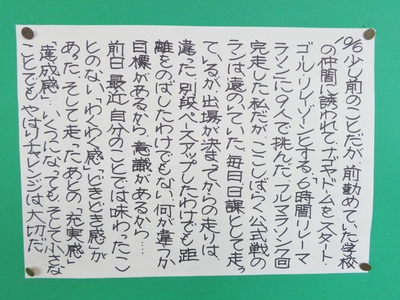 10/6 少し前のことだが、前勤めていた学校
の仲間に誘われて、ナゴヤドームをスタート・
ゴール・リレーゾーンとする、6時間リレーマ
ラソンに9人で挑んだ。フルマラソン7回
完走した私だが、ここしばらく、公式戦の
ランは遠のいていた。毎日日課として走っ
ているが、出場が決まってからの走りは、
違った。別段ペースアップしたわけでも、距
離をのばしたわけでもない。何が違うか、
目標があるから、意識があるから…
前日、最近自分のことでは味わったこ
とのない「わくわく感」「どきどき感」が
あった。そして走ったあとの「充実感」
「達成感」。いくつになっても、そして小さな
ことでも、やはりチャレンジは大切だ。